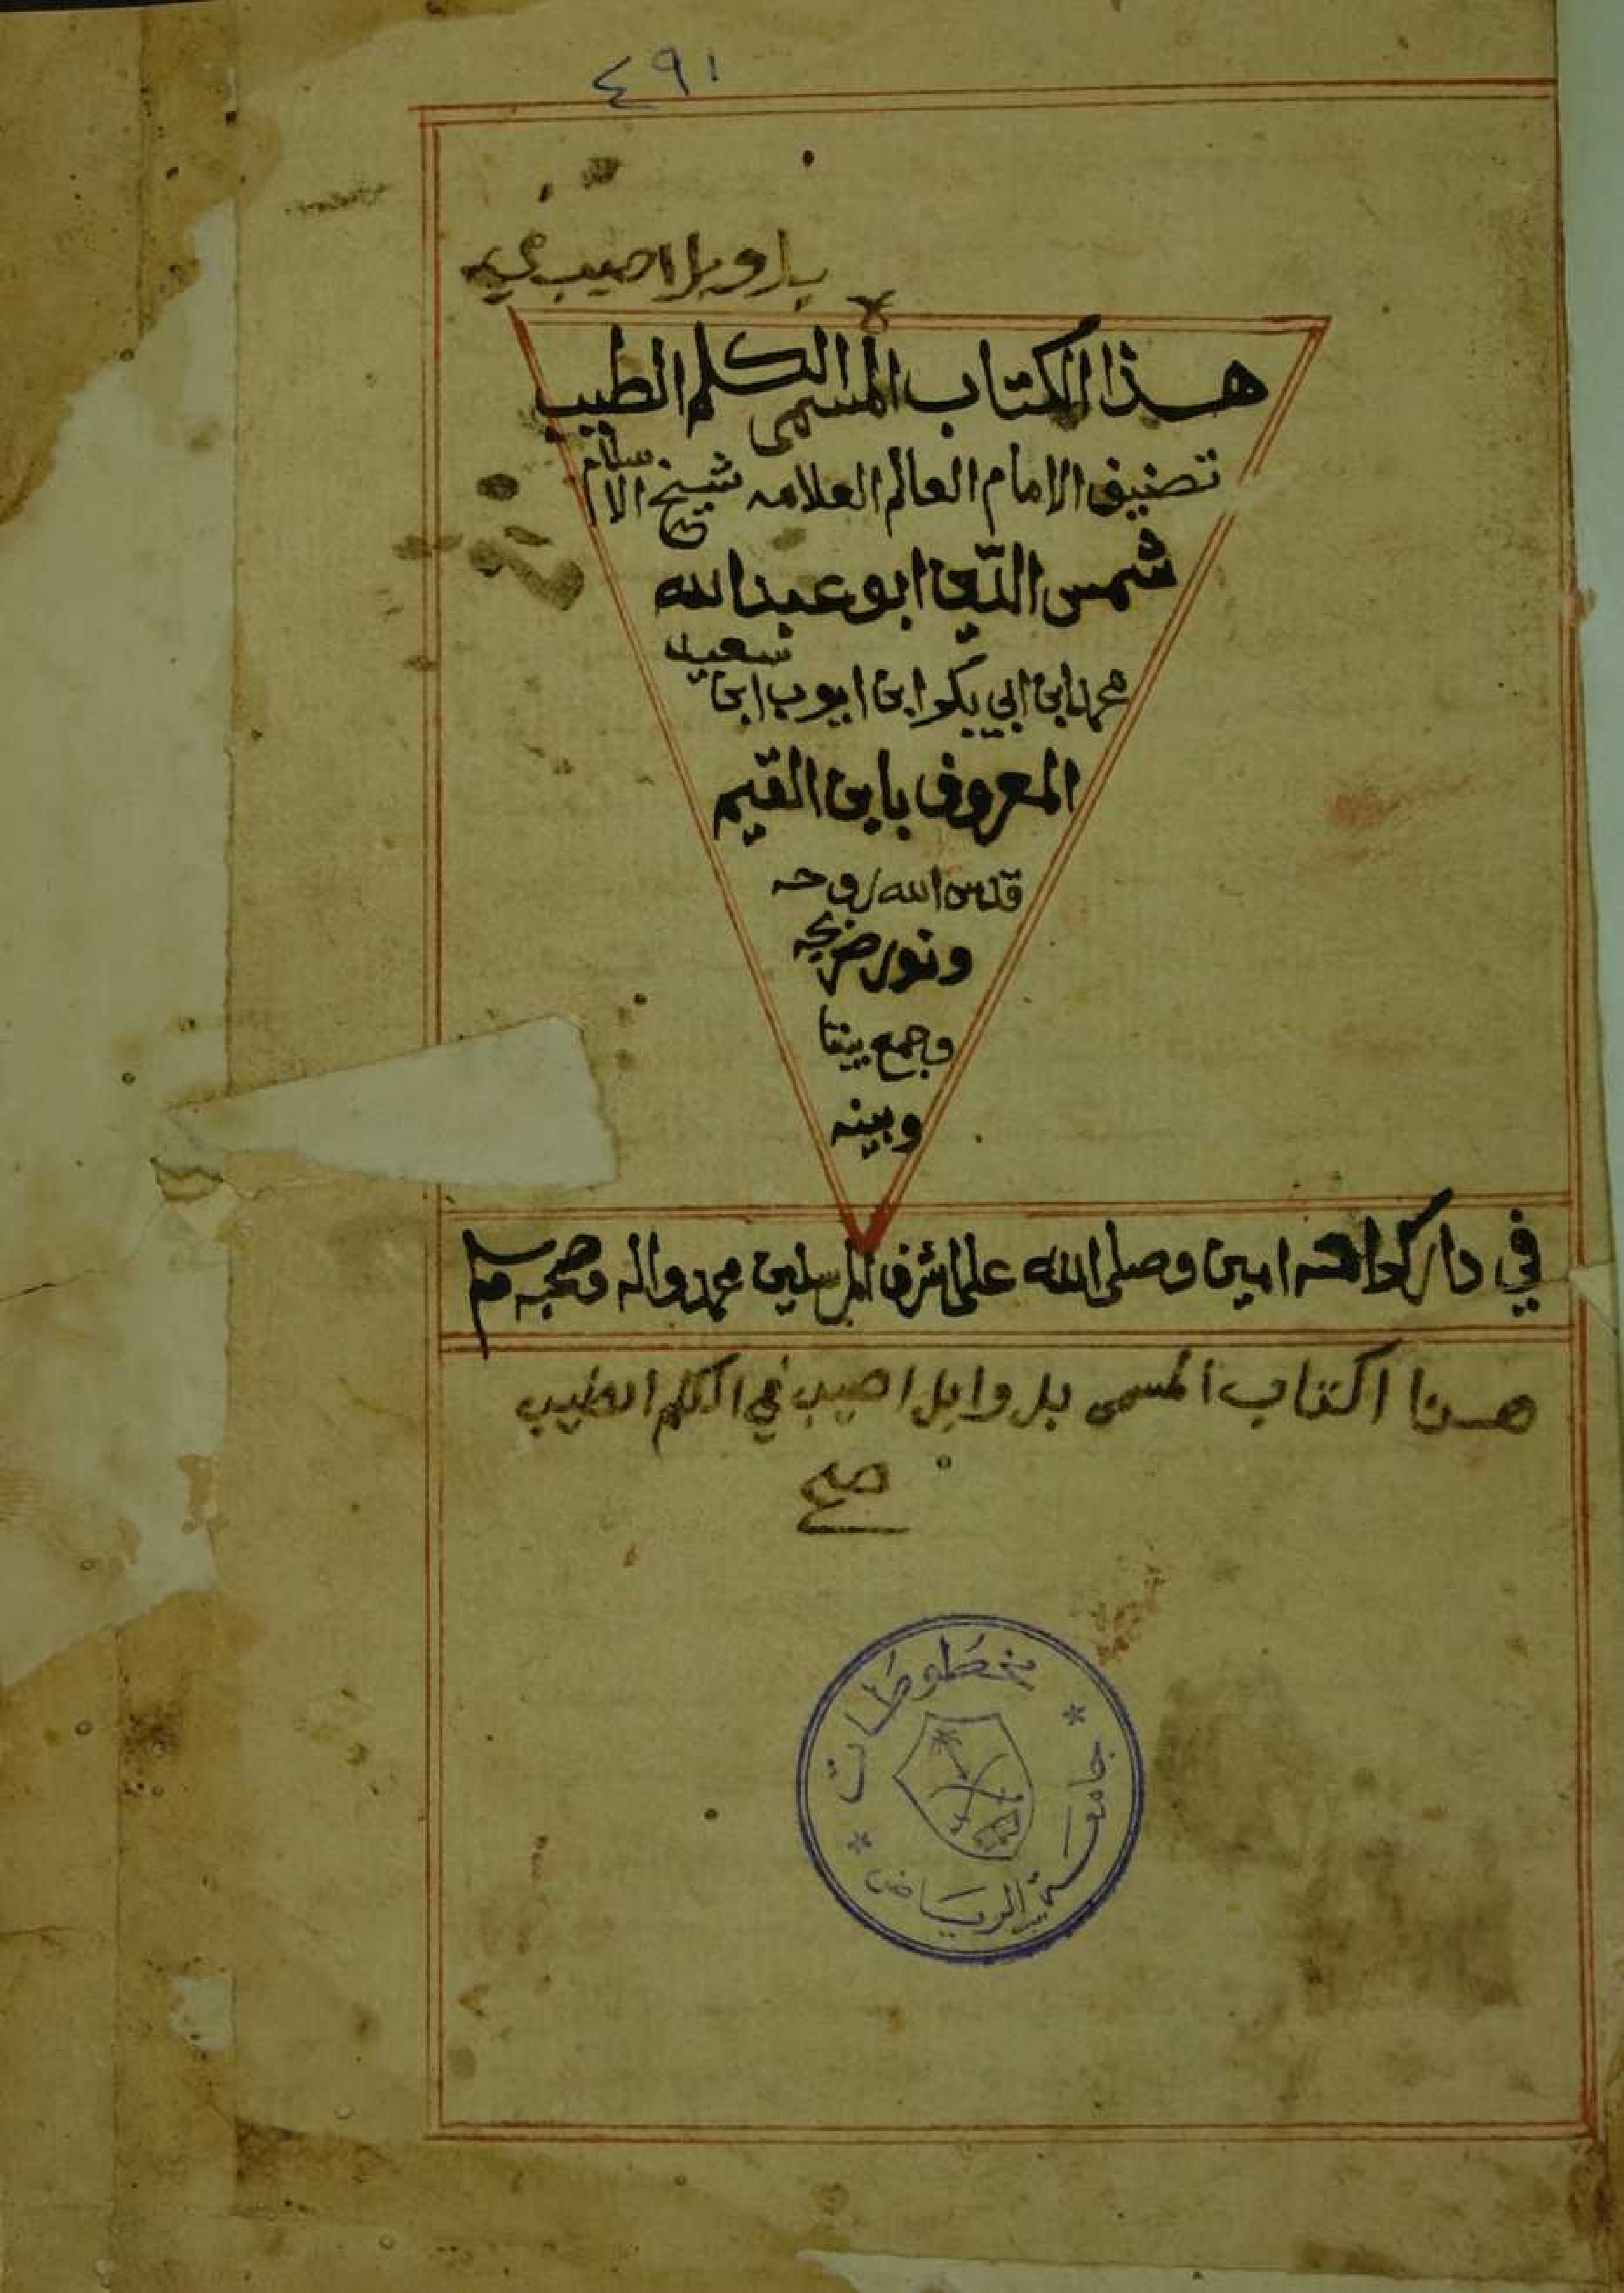 ٤٩١
بلوبل اصيب في
هذا الكتاب المسمى الكلم الطيب
تصنيف الامام العالم العلامه شيخ الاسلام
شمس الدّين ابو عبد الله
محمد ابن ابي بكر ابن ايوب ابن سعيد
المعروف بابن القيّم
قدس الله روحه
ونور ضريحه
وجمع بيننا
وبينه
في دار كرامته امين وصلى الله على اشرف المرسلين محمد واله وصحبه وسلم
هذا اكتاب المسمى بل وابل اصيب في اكلم الطيب
صح
مخطوطات
جامعة الرياض